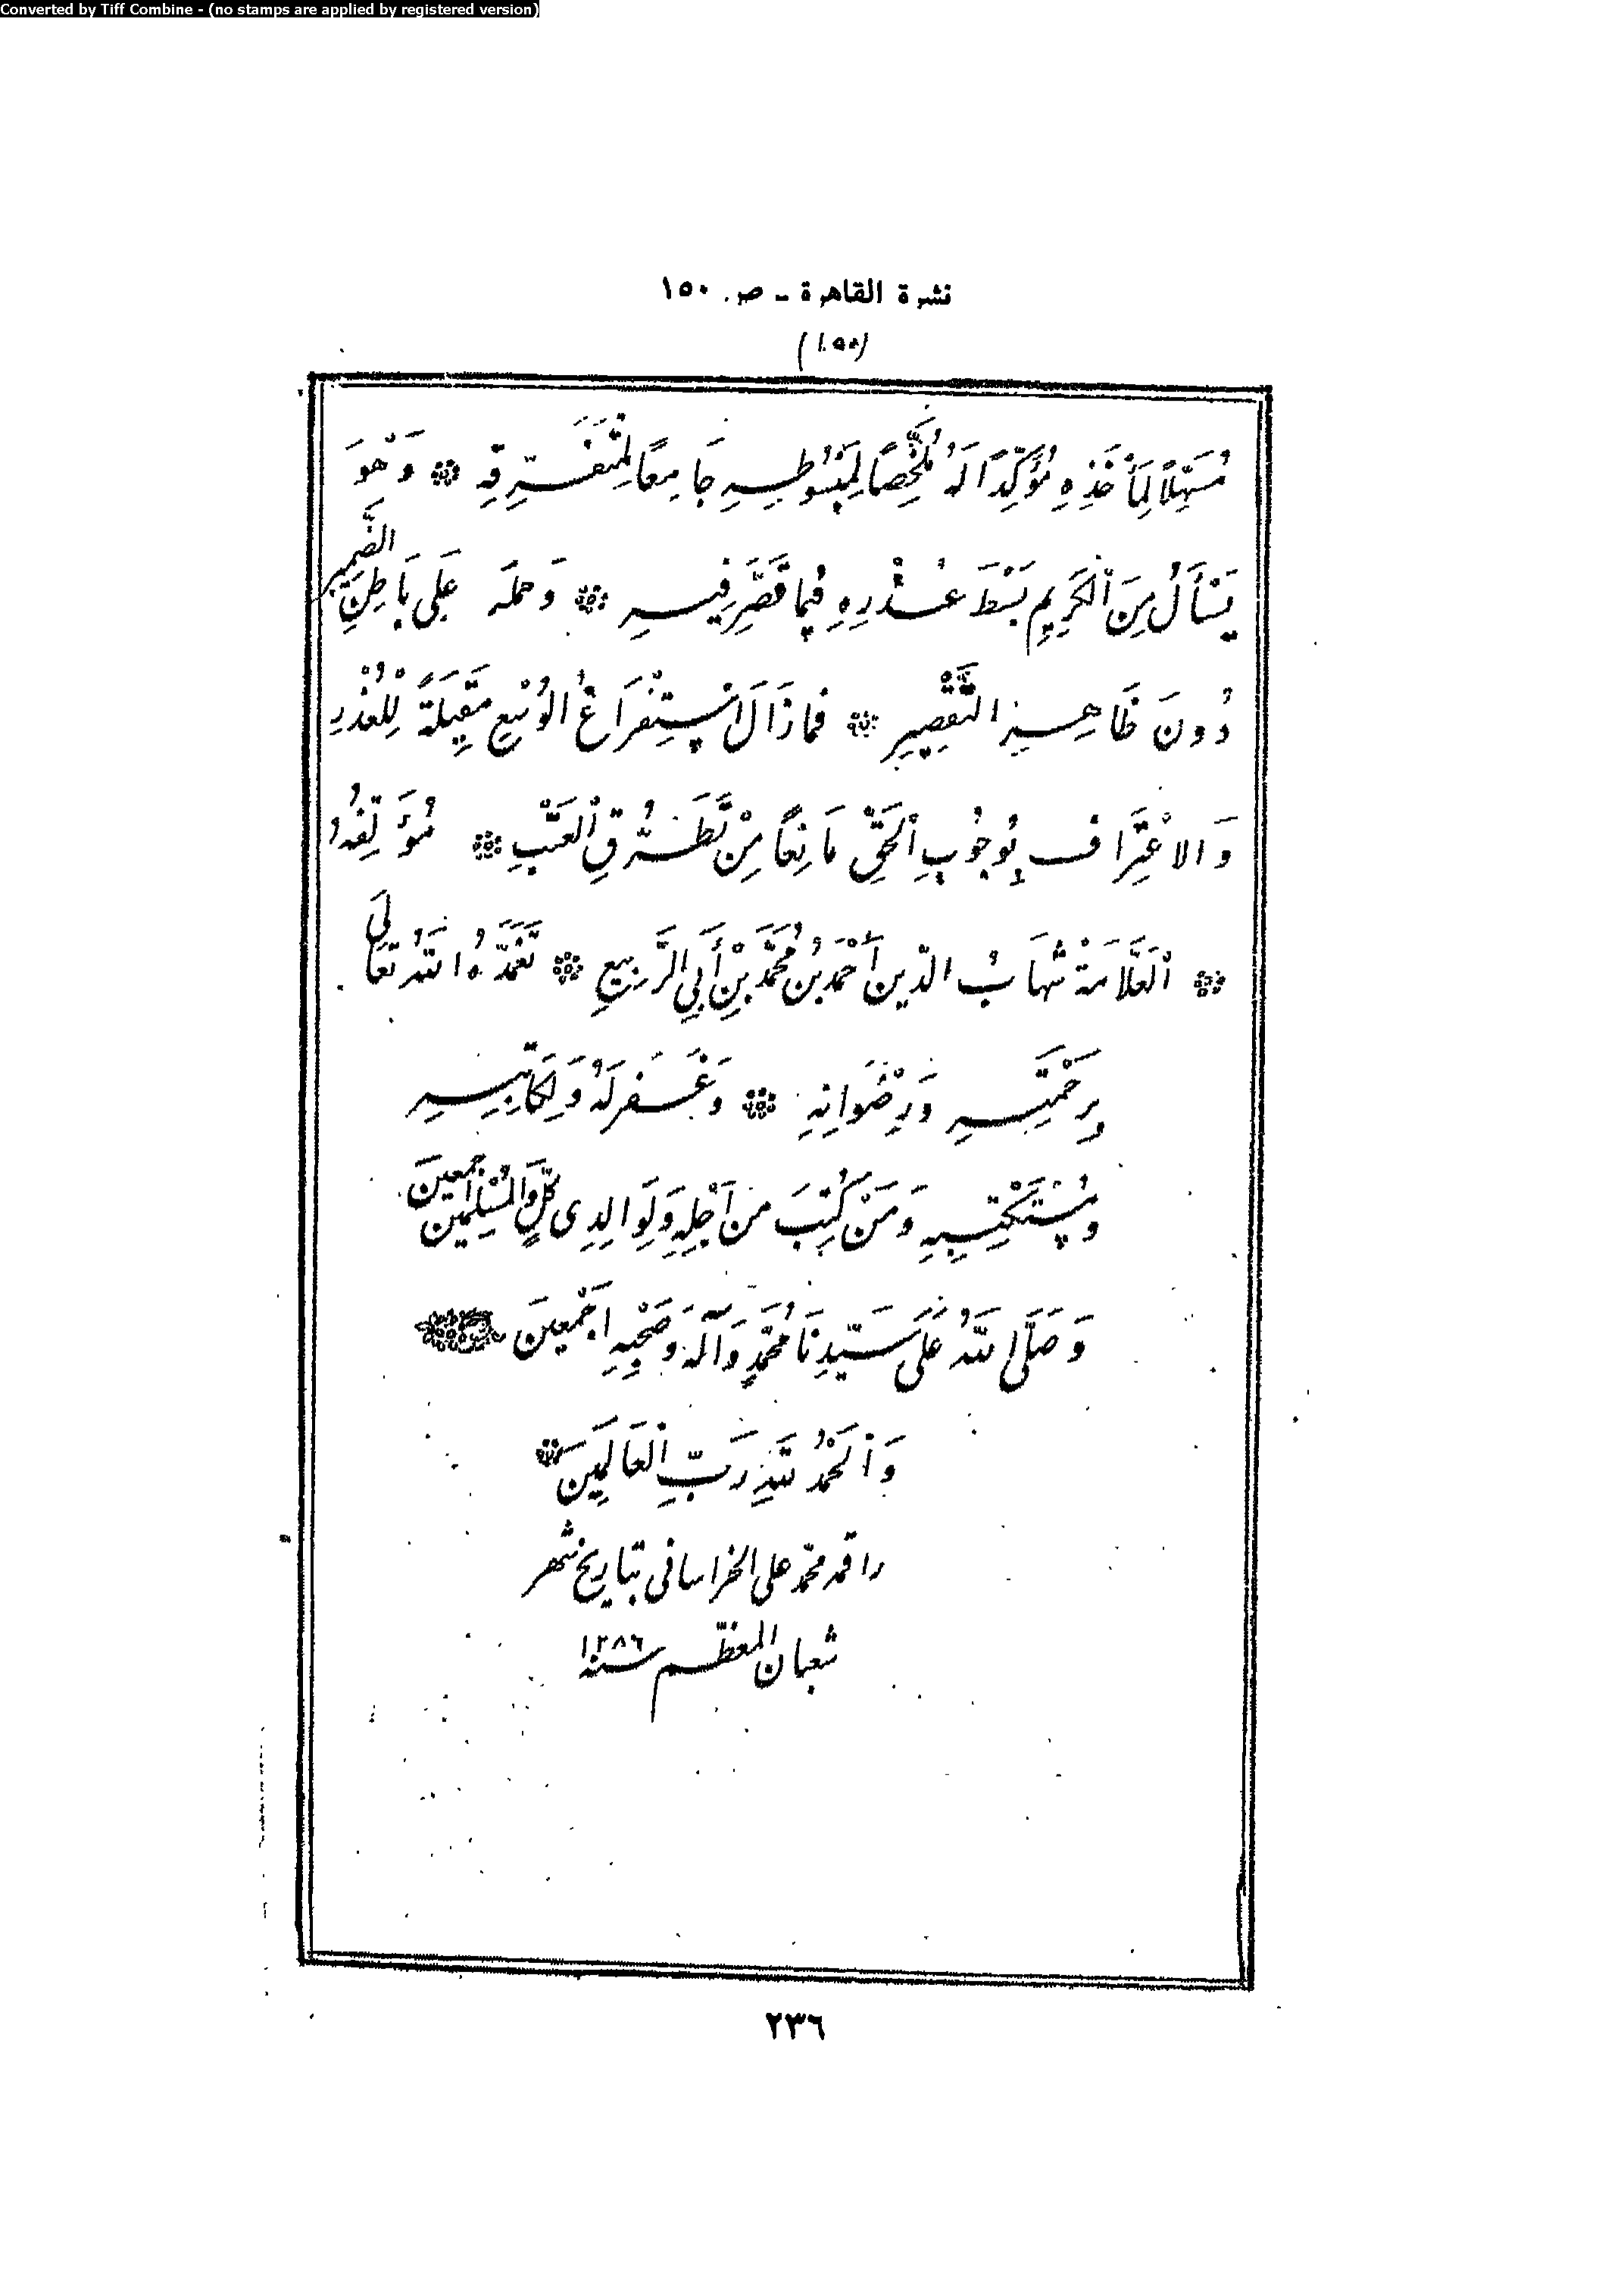 Converted by Tiff Combine - (no stamps are applied by registered version)
نشرة القاهرة - ص. ١٥٠
(١٥٠)
مُسَهِّلاً لِمَأْخَذِهِ مُؤَكِّدًا لَهُ مُلَخِّصًا لِمَبْسُوطِهِ جَامِعًا لِمُتَفَرِّقِهِ ۞ وَهُوَ
يَسْأَلُ مِنَ الْكَرِيمِ بَسْطَ عُذْرِهِ فِيمَا قَصَّرَ فِيهِ ۞ وَحَمْلَهُ عَلَى بَاطِنِ الضَّمِيرِ
دُونَ ظَاهِرِ التَّقْصِيرِ ۞ فَمَا زَالَ اسْتِفْرَاغُ الْوُسْعِ مُقِيلَةً لِلْعُذْرِ
وَالاعْتِرَافُ بِوُجُوبِ الْحَقِّ مَانِعًا مِنْ تَطَرُّقِ الْعَتْبِ ۞ مُؤَلِّفُهُ
۞ الْعَلَّامَةُ شِهَابُ الدِّينِ أَحْمَدُ بْنُ مُحَمَّدِ بْنِ أَبِي الرَّبِيعِ ۞ تَغَمَّدَهُ اللهُ تَعَالَى
بِرَحْمَتِهِ وَرِضْوَانِهِ ۞ وَغَفَرَ لَهُ وَلِكَاتِبِهِ
وَمُسْتَكْتِبِهِ وَمَنْ كُتِبَ مِنْ أَجْلِهِ وَلِوَالِدِى كُلٍّ وَالْمُسْلِمِينَ أَجْمَعِينَ
وَصَلَّى اللهُ عَلَى سَيِّدِنَا مُحَمَّدٍ وَآلِهِ وَصَحْبِهِ أَجْمَعِينَ
وَالْحَمْدُ لِلَّهِ رَبِّ الْعَالَمِينَ ۞
راقمه محمد على الخراسانى بتاريخ شهر
شعبان المعظم سنة ١٢٨٦
٢٣٦